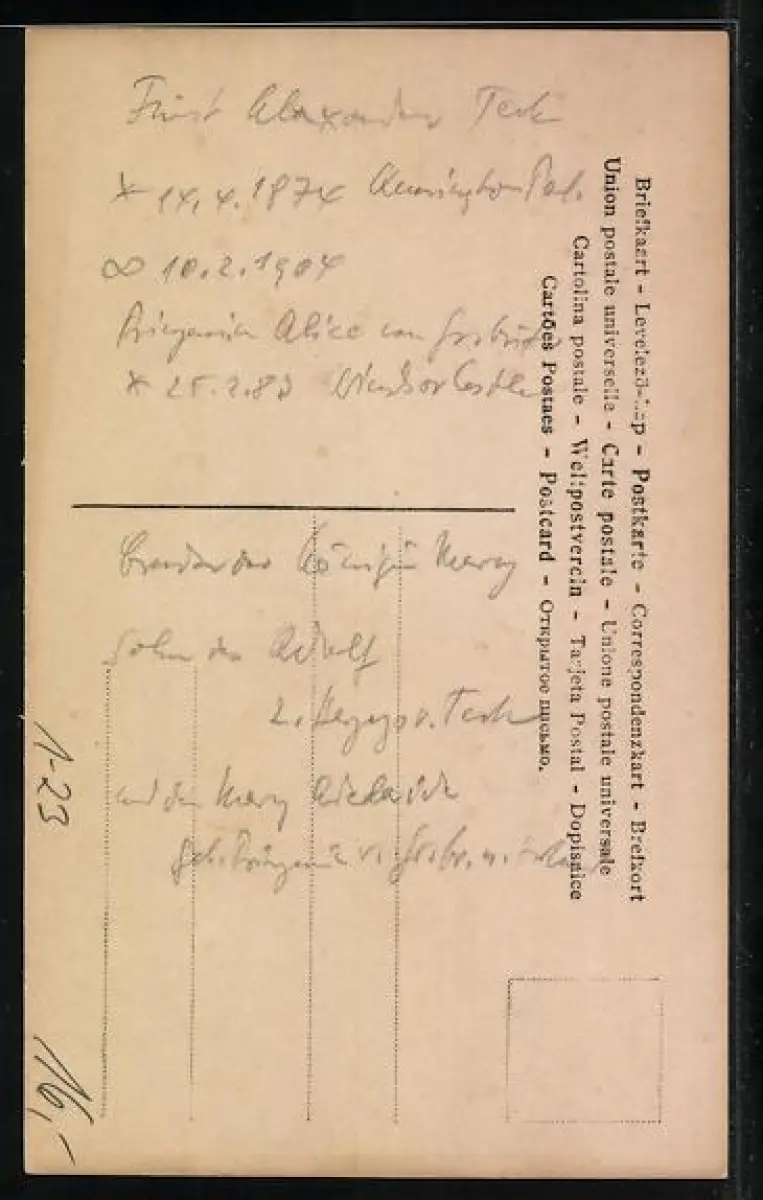 Fürst Alexander Teck
* 14.4.1874 Kensington Pal.
∞ 10.2.1904
Prinzessin Alice von
* 25.2.83 Windsor Castle
Bruder der Königin Mary
Sohn des Adolf
2. Herzogs v. Teck
und der Mary Adelaide
geb. Prinzessin v. Großbr. u. Irland
Briefkaart - Levelező-Lap - Postkarte - Correspondenzkart - Brefkort
Union postale universelle - Carte postale - Unione postale universale
Cartolina postale - Weltpostverein - Tarjeta Postal - Dopisnice
Cartões Postaes - Postcard - Открытое письмо.
1-23
16,-